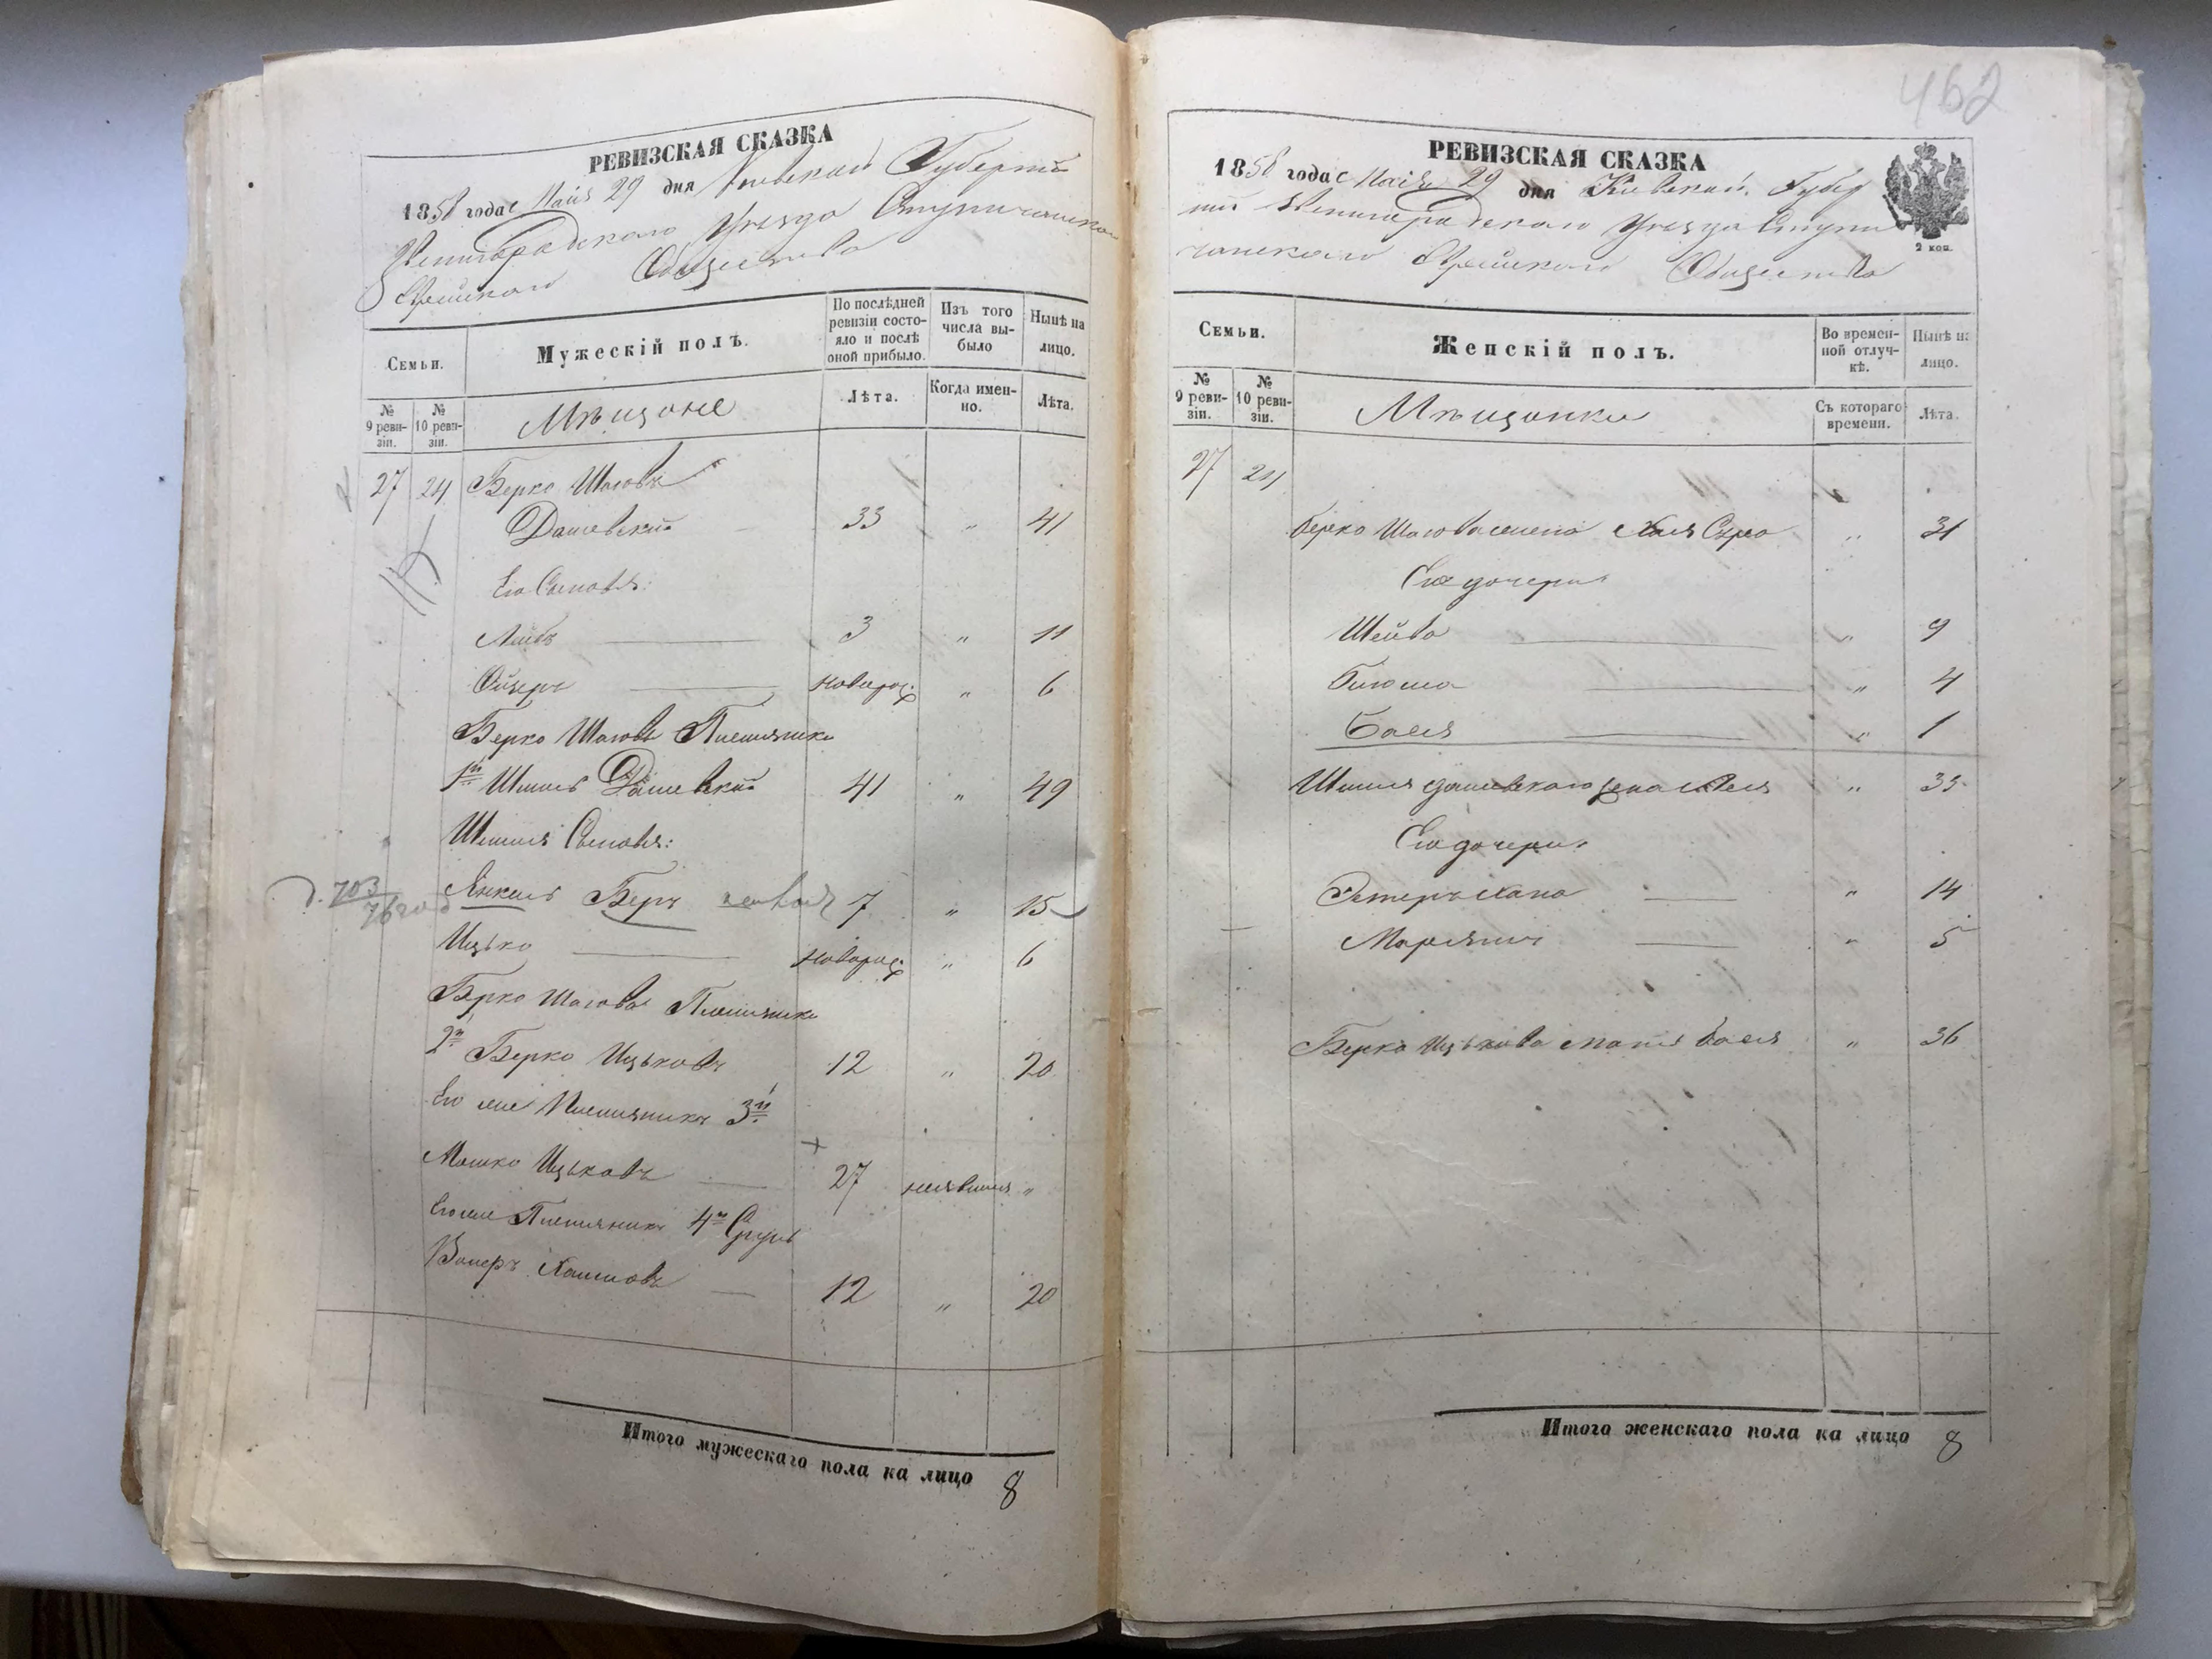 462
РЕВИЗСКАЯ СКАЗКА
1858 года Маія 29 дня Кіевской Губерніи
Звенигородскаго Уезда
Еврейскаго Общества
Семьи.
Мужескій полъ.
По послѣдней ревизіи состояло и послѣ оной прибыло.
Изъ того числа выбыло
Нынѣ на лицо.
№ 9 ревизіи.
№ 10 ревизіи.
Мѣщане
Лѣта.
Когда именно.
Лѣта.
27 24 Берко Шаговъ
Дашевскій 33 " 41
Его Сыновья:
Лейбъ 3 " 11
Ойзеръ новорож. " 6
Берко Шагова Племянники
1й Шмиль Дашевскій 41 " 49
Шмиля Сыновья:
д. 703
Янкель Беръ 7 " 15
Ицько новорож. " 6
Берко Шагова Племянники
2й Берко Ицьковъ 12 " 20
Его же Племянникъ 3й
Мошко Ицьковъ 27 "
Его же Племянникъ 4й Сруль
Хаимовъ 12 " 20
Итого мужескаго пола на лицо 8
РЕВИЗСКАЯ СКАЗКА
1858 года Маія 29 дня Кіевской Губер
ніи Звенигородскаго Уезда
Еврейскаго Общества
2 коп.
Семьи.
Женскій полъ.
Во временной отлучкѣ.
Нынѣ на лицо.
№ 9 ревизіи.
№ 10 ревизіи.
Мѣщанки
Съ котораго времени.
Лѣта.
27 24
Берко Шагова жена Хая Сура " 31
Его дочери
Шейва " 9
" 4
Бася " 1
Шмиля Дашевскаго жена " 35
Его дочери
Эстеръ Хана " 14
" 5
Берка Ицькова мать Бася " 36
Итого женскаго пола на лицо 8